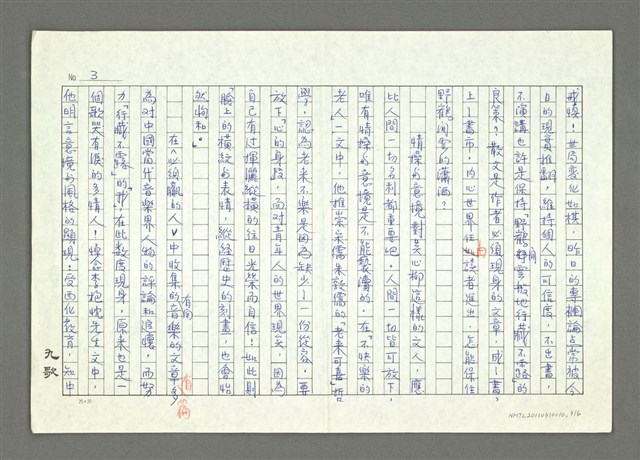 No 3
戒慎!世局變化如棋,昨日的專欄論点常被今
日的現實推翻,維持個人的可信度,不出書,
不演講也許是保持「野鶴靜雲般地行藏不露的」
良策?散文是作者必須現身的文章,成了書,
上了書市,內心世界任由讀者進出,怎能保住
野鶴閒雲的瀟洒?
情操與意境對吳心柳這樣的文人,應
比人間一切名利都重要吧,人間一切皆可放下,
唯有情操與意境是不能褻瀆的,在「不快樂的
老人」一文中,他推崇梁儒的「老來可喜」哲
學,認為老來不樂是因為缺少了一份從容,要
放下「心的身段,面對青年人的世界現實,因為
自己有过揮灑縱橫的往日光榮而自信!如此則
「臉上的橫紋與表情,縱經歷史的刻畫,也會怡
然昫和」。
在《必須贏的人》中收集的有関音樂的文章多有篇
為对中國當代音樂界人物的評論和追懷,而努
力「行藏不露」的「我」在此數度現身,原來也是一
個歌哭有淚的多情人!悼念李抱忱先生文中,
他明言意境與風格的顯現:受西化教育,知中
九歌
20×20
NMTL20110410010, 4/6